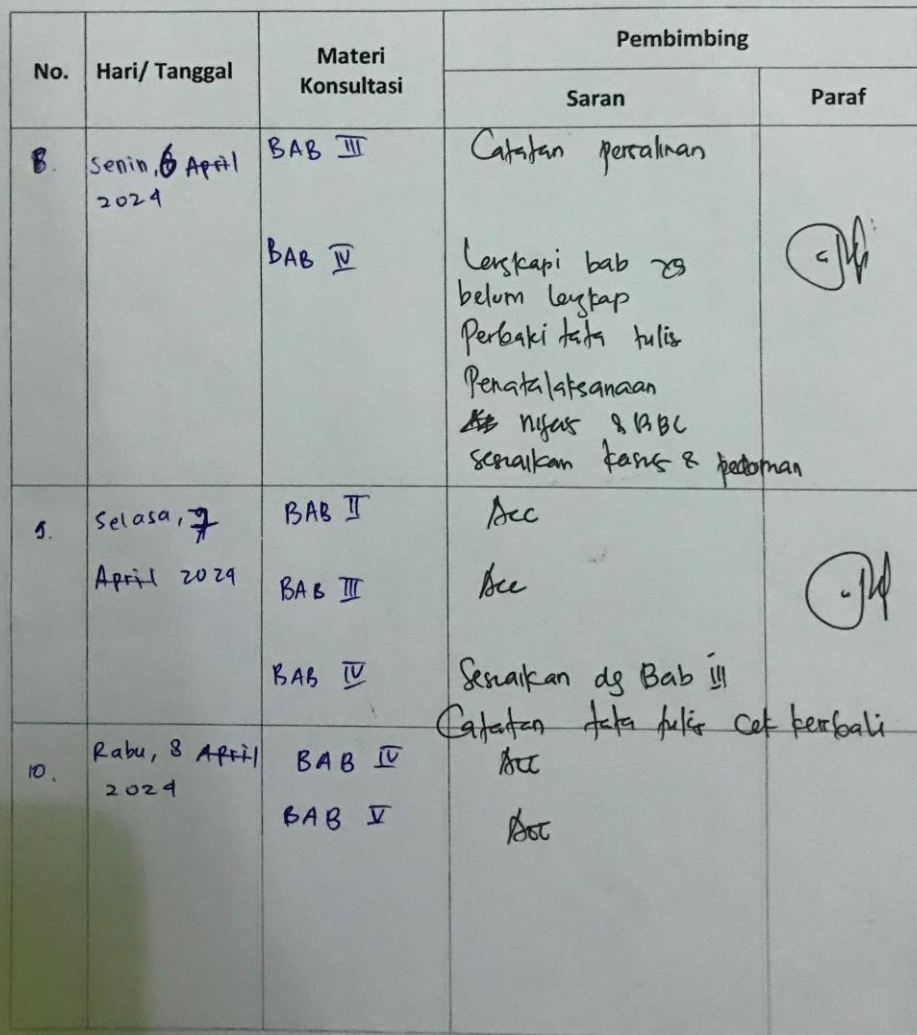 No. Hari/ Tanggal Materi Konsultasi Pembimbing
Saran Paraf
8. Senin, 6 April 2024 BAB III Catatan persalinan
BAB IV Lengkapi bab yg
belum lengkap
Perbaki tata tulis
Penatalaksanaan
nifas & BBL
sesuaikan kasus & pedoman
9. Selasa, 7 April 2024 BAB II Acc
BAB III Acc
BAB IV Sesuaikan dg Bab III
Catatan tata tulis cek kembali
10. Rabu, 8 April 2024 BAB IV Acc
BAB V Acc